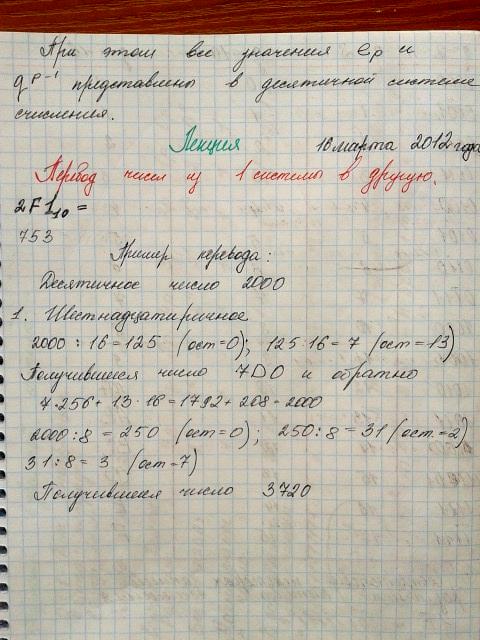 При этом все значения eₚ и
qᵖ⁻¹ представлены в десятичной системе
счисления.
Лекция 16 марта 2012 года
Перевод чисел из 1 системы в другую.
2F1₁₀ =
753
Пример перевода:
Десятичное число 2000
1. Шестнадцатиричное
2000 : 16 = 125 (ост=0); 125:16 = 7 (ост=13)
Получившееся число 7D0 и обратно
7·256 + 13·16 = 1792 + 208 = 2000
2000:8 = 250 (ост=0); 250:8 = 31 (ост.=2)
31:8 = 3 (ост=7)
Получившееся число 3720